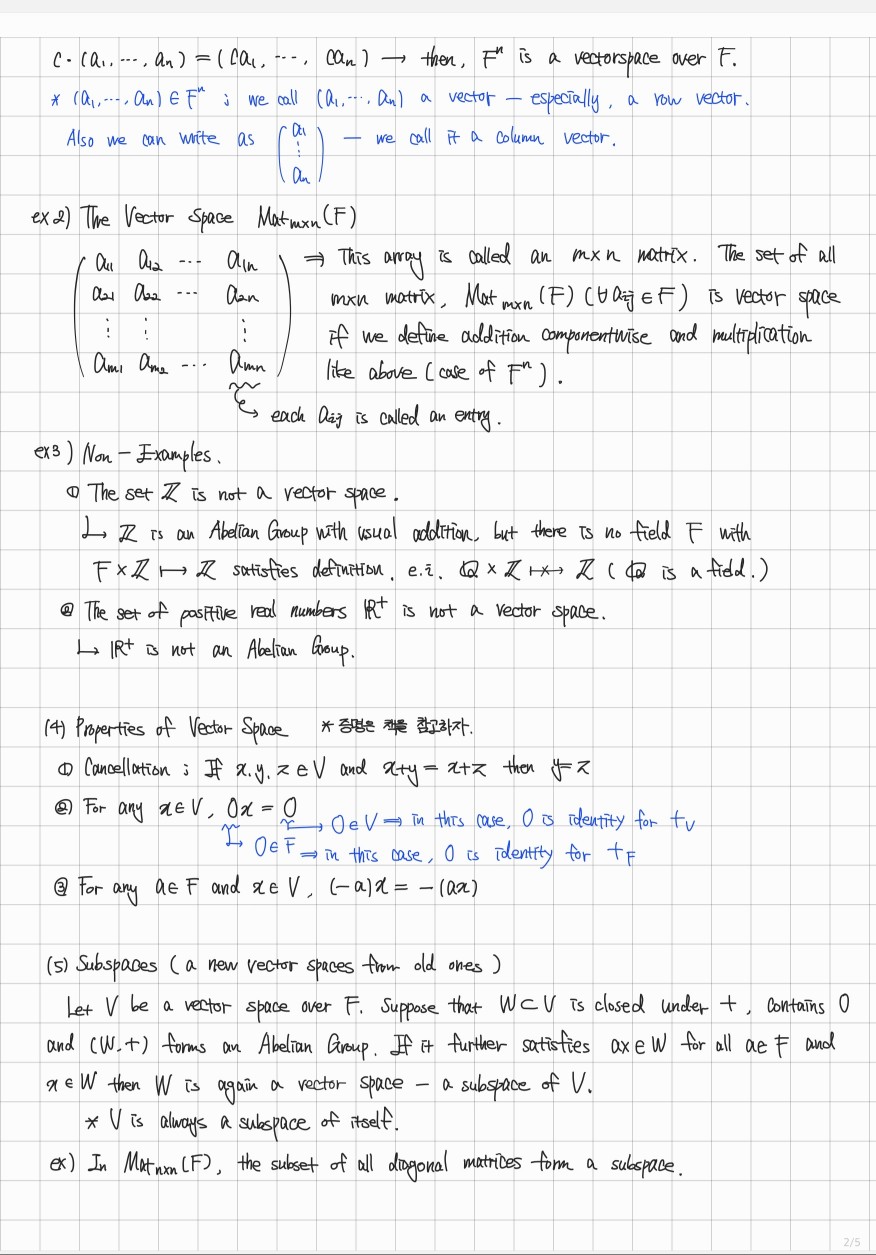 c · (a₁, ···, aₙ) = (ca₁, ···, caₙ) → then, Fⁿ is a vectorspace over F.
* (a₁, ···, aₙ) ∈ Fⁿ ; we call (a₁, ···, aₙ) a vector – especially, a row vector.
Also we can write as (a₁ ⋮ aₙ) – we call it a column vector.
ex 2) The Vector Space Matₘₓₙ(F)
a₁₁ a₁₂ ··· a₁ₙ ⇒ This array is called an m×n matrix. The set of all
a₂₁ a₂₂ ··· a₂ₙ m×n matrix, Matₘₓₙ(F) (∀aᵢⱼ ∈ F) is vector space
⋮ ⋮ ⋮ if we define addition componentwise and multiplication
aₘ₁ aₘ₂ ··· aₘₙ like above (case of Fⁿ).
↳ each aᵢⱼ is called an entry.
ex3) Non – Examples.
① The set ℤ is not a vector space.
↳ ℤ is an Abelian Group with usual addition, but there is no field F with
F × ℤ ↦ ℤ satisfies definition. e.i. ℚ × ℤ ↦̸ ℤ (ℚ is a field.)
② The set of positive real numbers ℝ⁺ is not a vector space.
↳ ℝ⁺ is not an Abelian Group.
(4) Properties of Vector Space * 증명은 책을 참고하자.
① Cancellation ; If x, y, z ∈ V and x+y = x+z then y=z
② For any x ∈ V, 0x = 0
→ 0 ∈ V ⇒ in this case, 0 is identity for +ᵥ
↳ 0 ∈ F ⇒ in this case, 0 is identity for +_F
③ For any a ∈ F and x ∈ V, (-a)x = -(ax)
(5) Subspaces (a new vector spaces from old ones)
Let V be a vector space over F. Suppose that W ⊂ V is closed under +, contains 0
and (W, +) forms an Abelian Group. If it further satisfies ax ∈ W for all a ∈ F and
x ∈ W then W is again a vector space – a subspace of V.
* V is always a subspace of itself.
ex) In Matₙₓₙ(F), the subset of all diagonal matrices form a subspace.
2/5